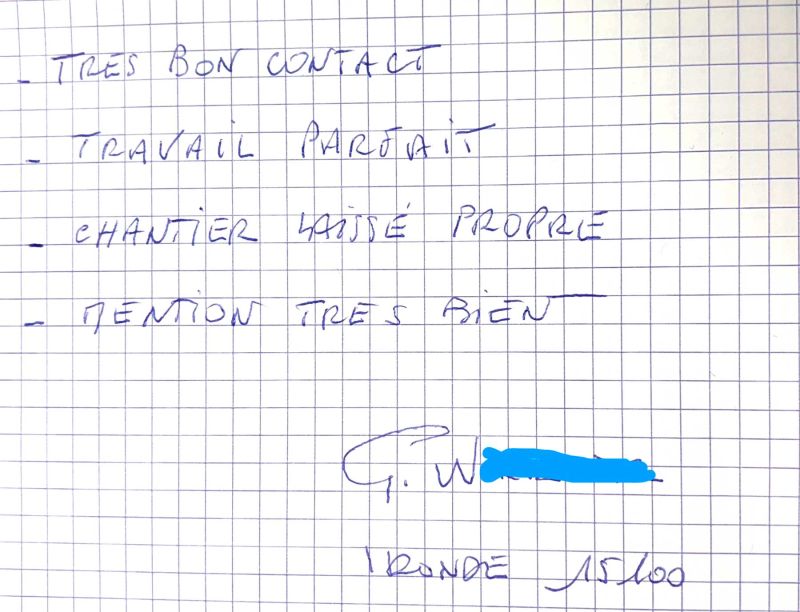 - TRES BON CONTACT
- TRAVAIL PARFAIT
- CHANTIER LAISSÉ PROPRE
- MENTION TRES BIEN
G. W
IRONDE 15100